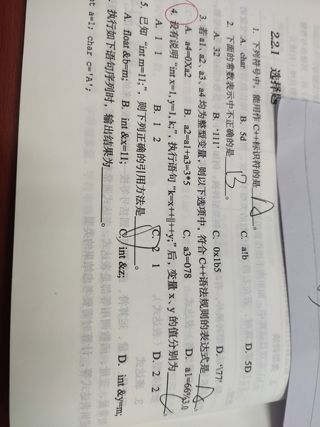 2.2.1 选择题
1. 下列符号中，能用作 C++标识符的是 A 。
A. char B. 5d C. a!b D. 5D
2. 下面的常数表示中不正确的是 B 。
A. 32 B. '111' C. 0x1b5 D. '\77'
3. 若 a1、a2、a3、a4 均为整型变量，则以下选项中，符合 C++语法规则的表达式是
A. a4=0Xa2 B. a2=a1+a3=3*5 C. a3=078 D. a1=66%3.0
4. 设有说明 "int x=1,y=1,k;"，执行语句 "k=x++||++y;" 后，变量 x、y 的值分别为
A. 1 1 B. 1 2 C. 2 1 D. 2 2
5. 已知 "int m=11;"，则下列正确的引用方法是
A. float &b=m; B. int &x=11; C. int &z; D. int &y=m;
执行如下语句序列时，输出结果为 。
t a=1; char c='A';